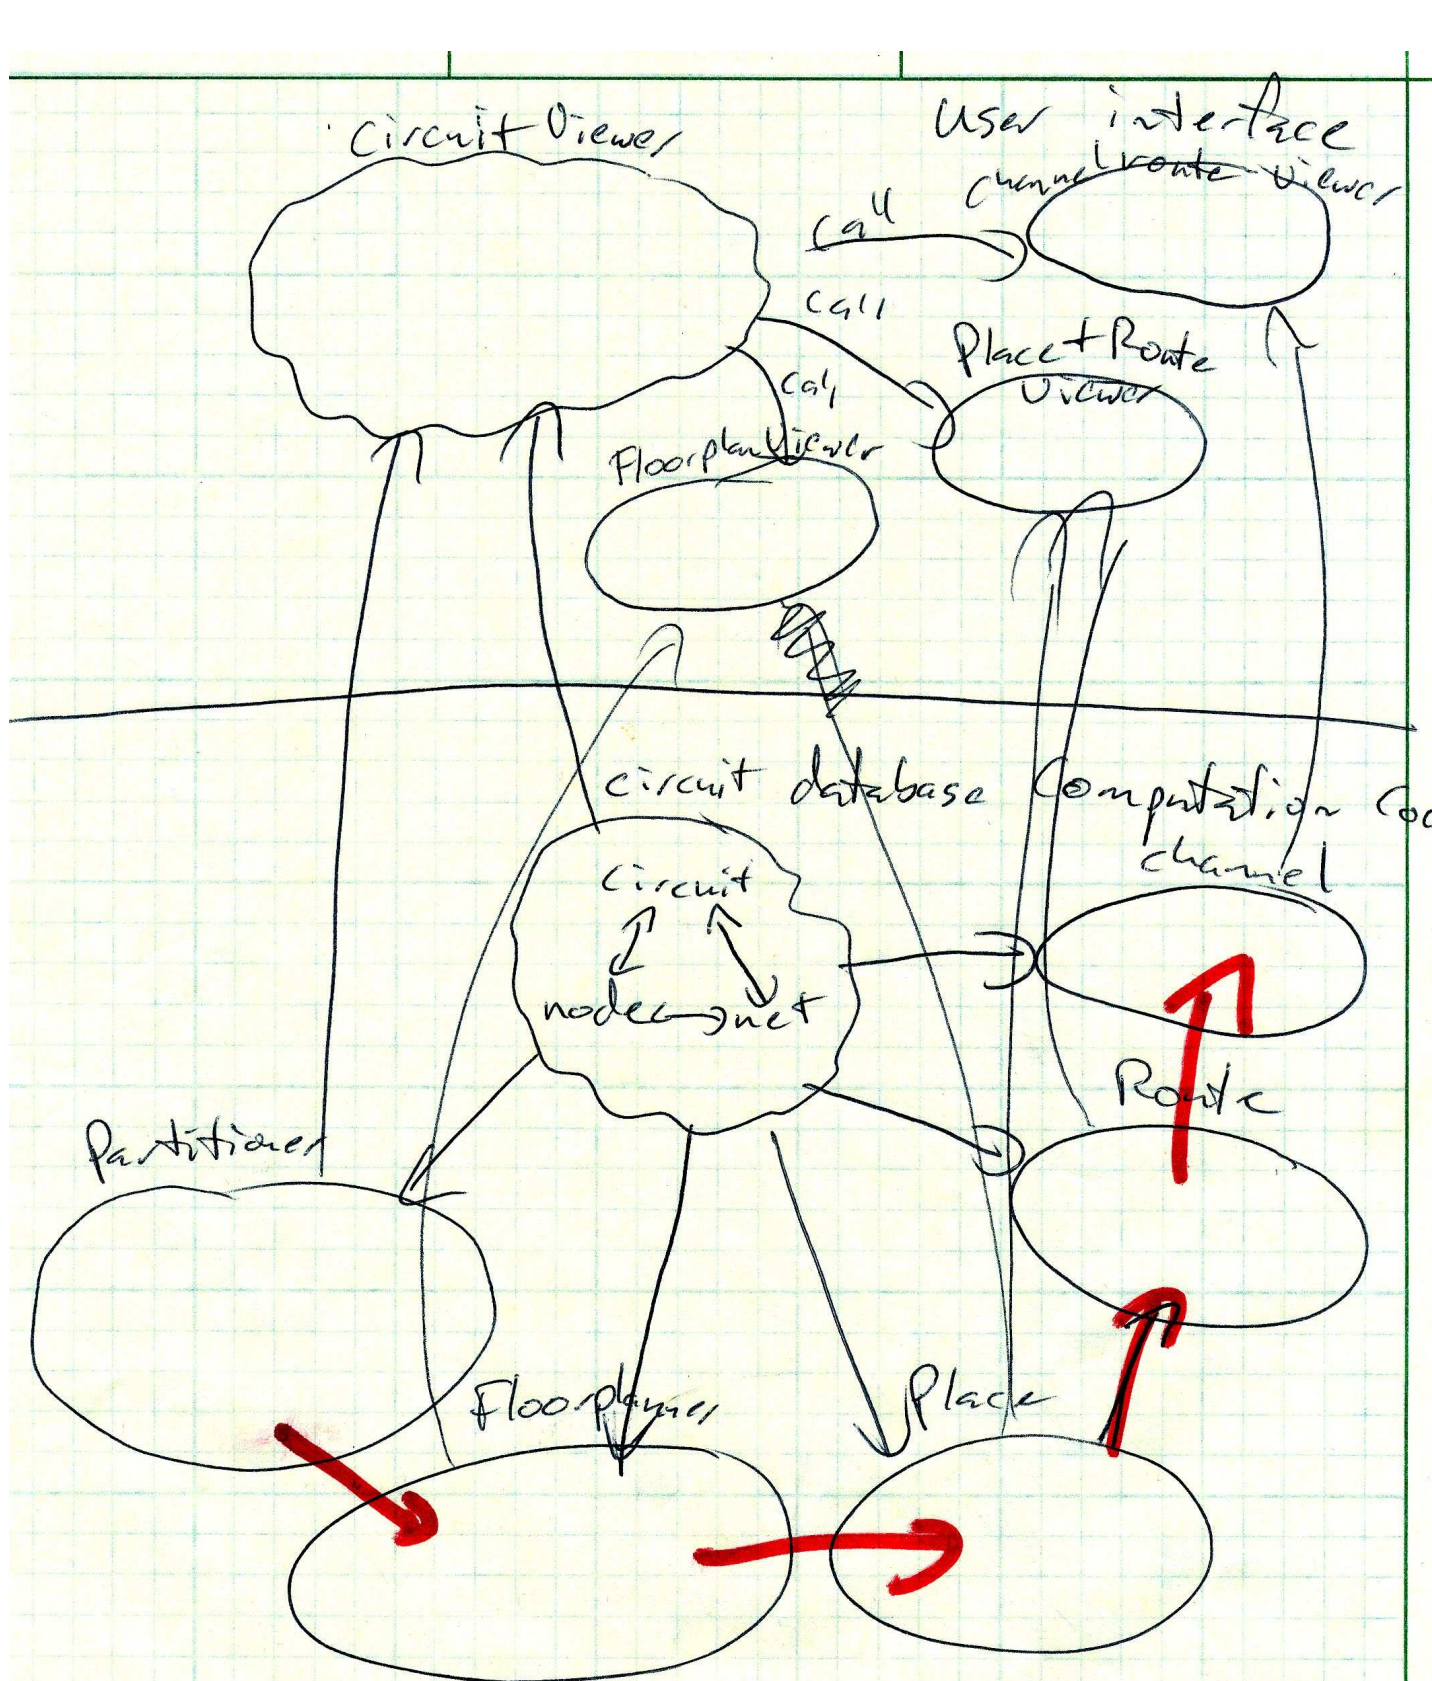 Circuit Viewer
User interface
Channel route viewer
call
call
Place + Route
Viewer
call
Floorplan Viewer
circuit database
Computation Coo
channel
circuit
node net
Route
Partitioner
Floorplanner
Place